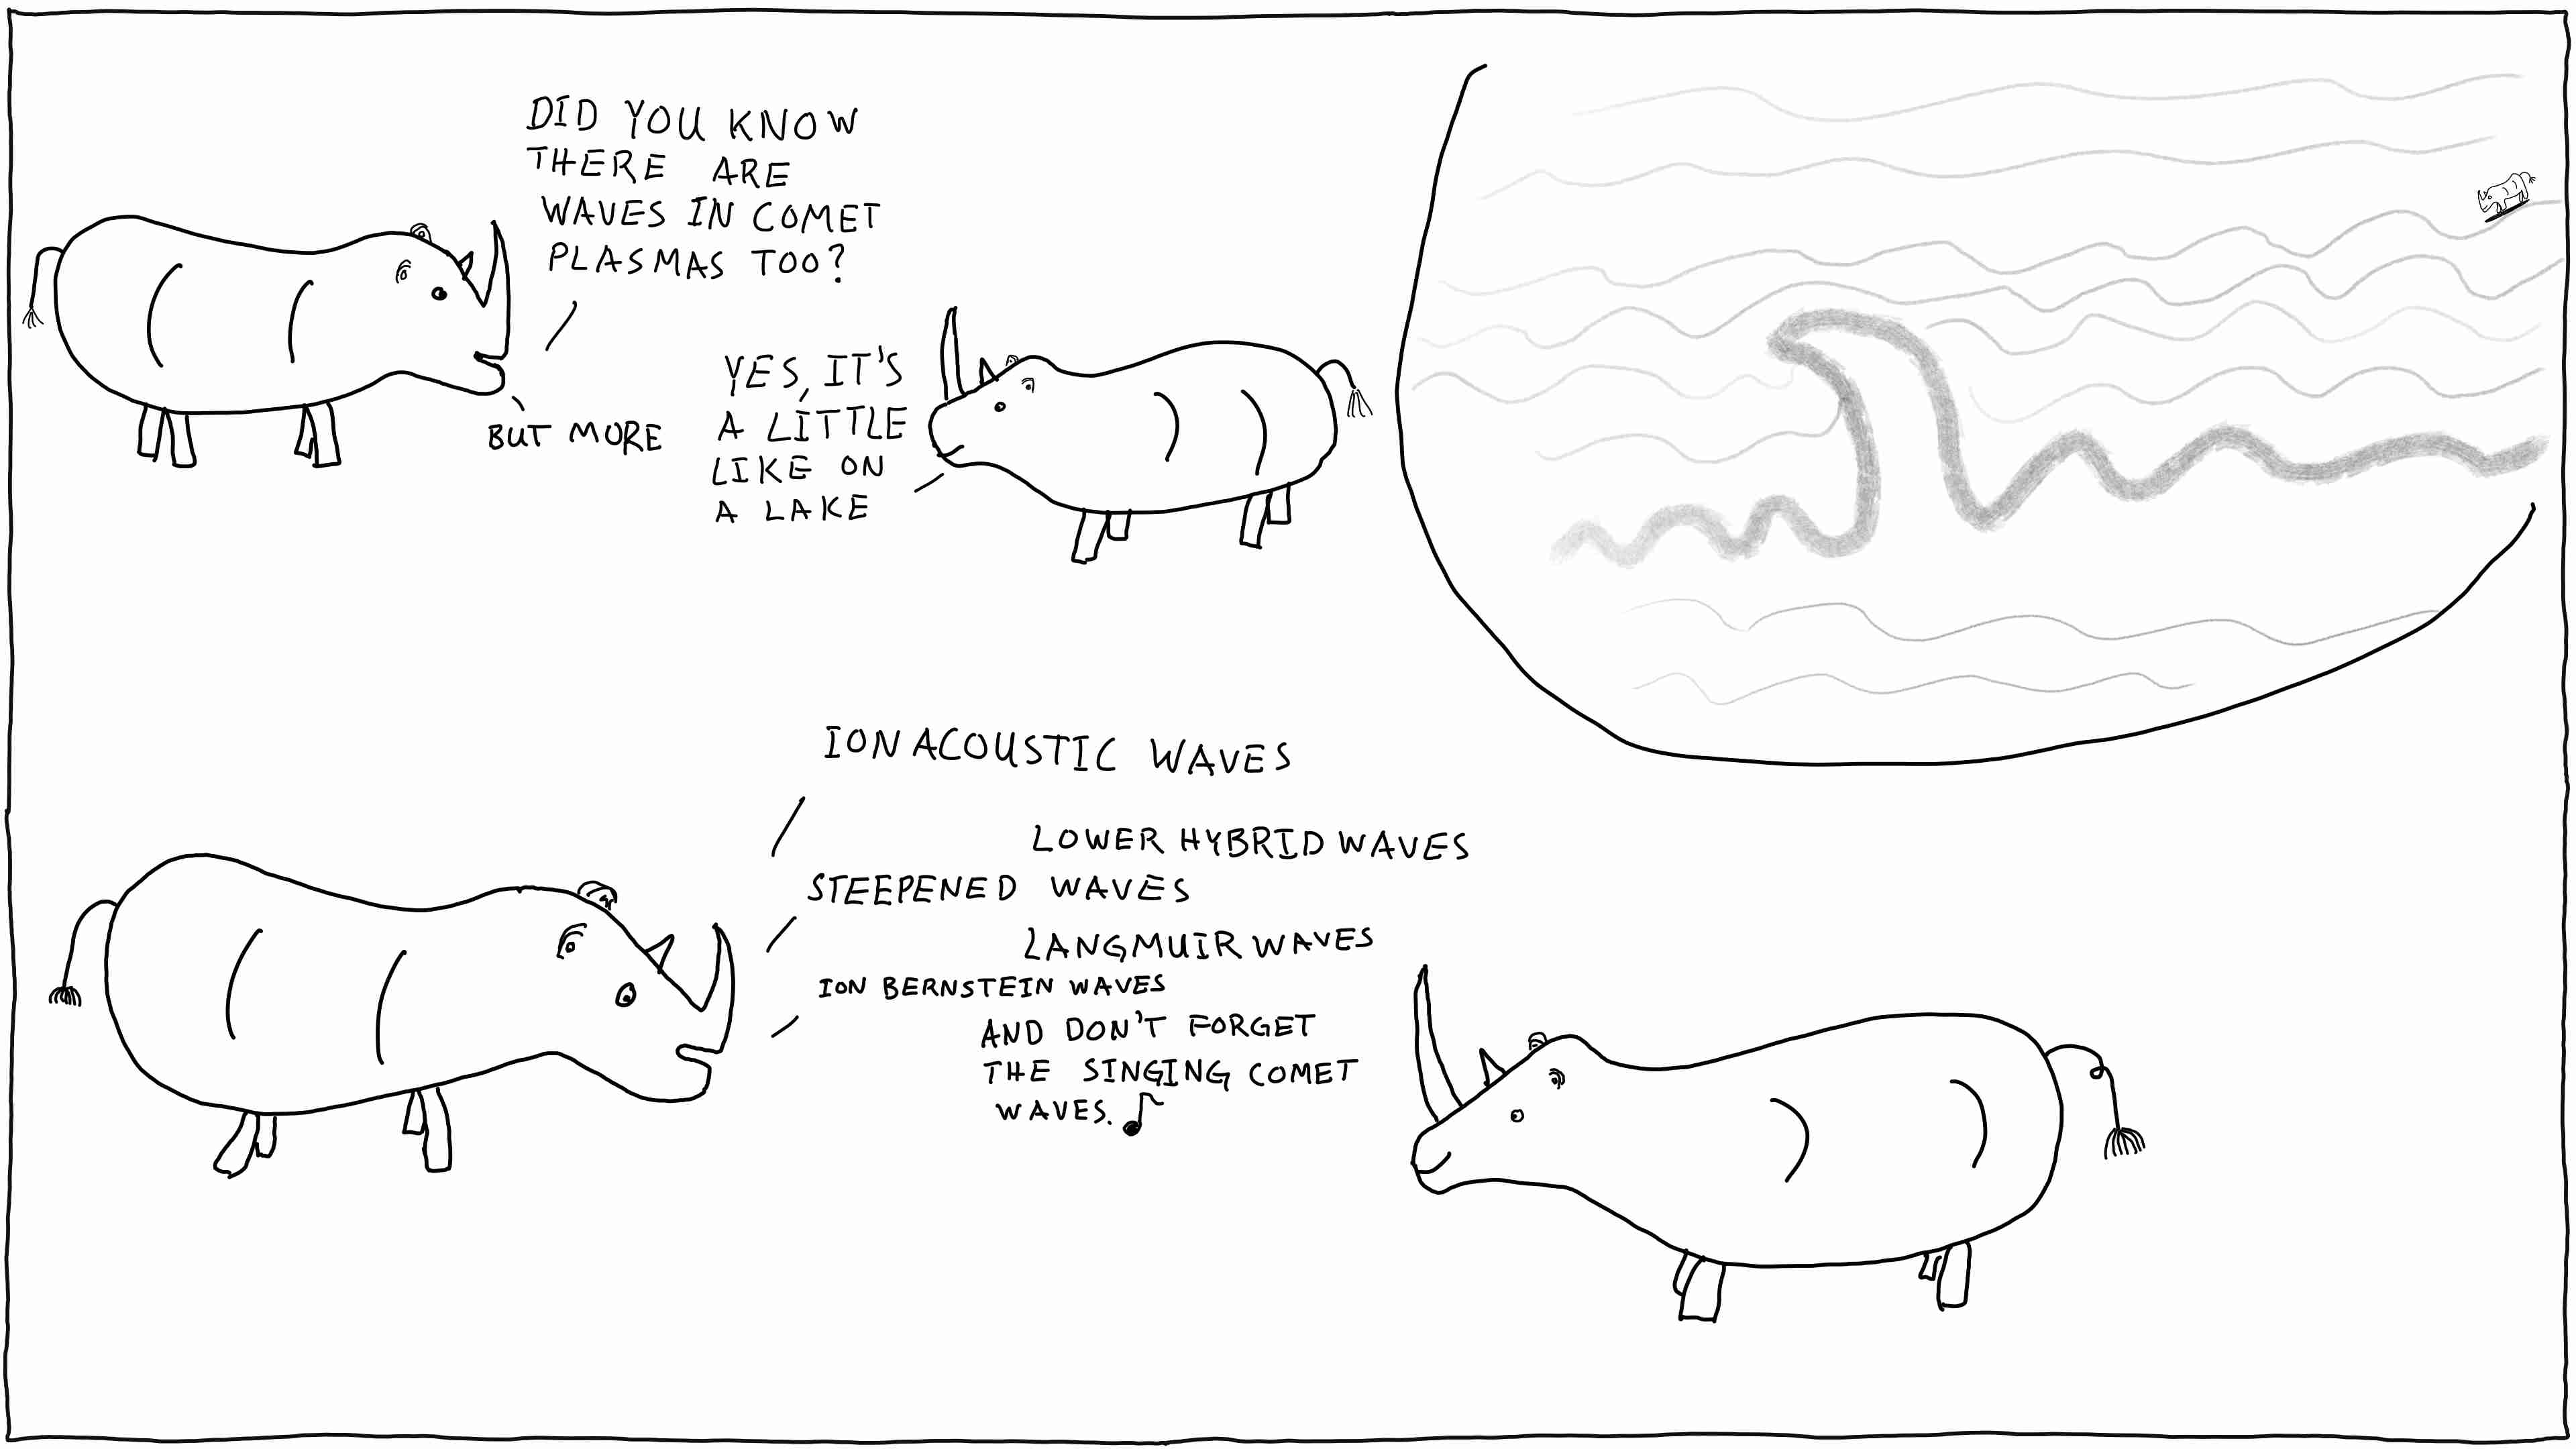 DID YOU KNOW
THERE ARE
WAVES IN COMET
PLASMAS TOO?
YES, IT'S
A LITTLE
LIKE ON
A LAKE
BUT MORE
ION ACOUSTIC WAVES
LOWER HYBRID WAVES
STEEPENED WAVES
LANGMUIR WAVES
ION BERNSTEIN WAVES
AND DON'T FORGET
THE SINGING COMET
WAVES.